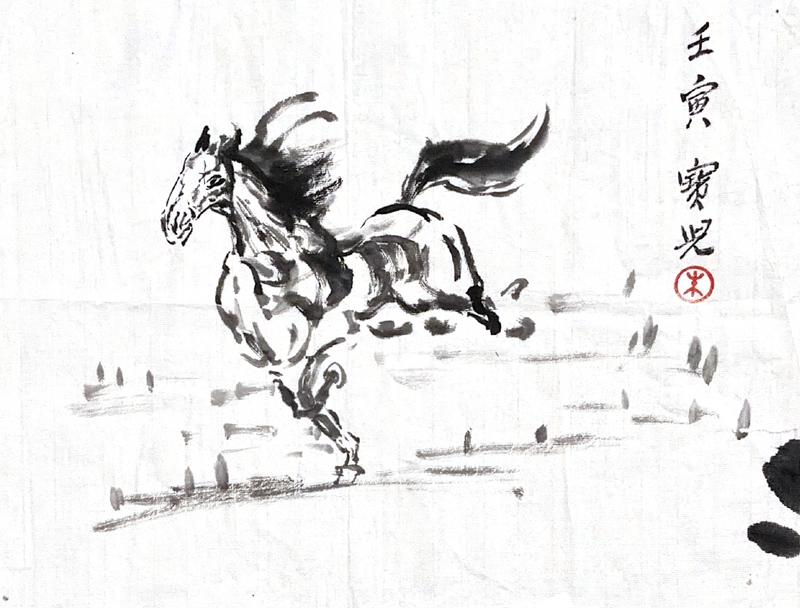 壬寅 寶兒
朱